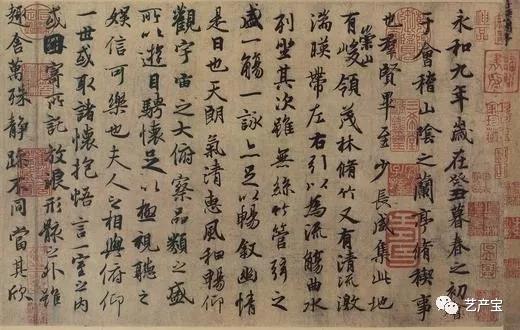 永和九年歲在癸丑暮春之初會
于會稽山陰之蘭亭脩稧事
也羣賢畢至少長咸集此地
有崇山峻領茂林脩竹又有清流激
湍暎帶左右引以為流觴曲水
列坐其次雖無絲竹管弦之
盛一觴一詠亦足以暢叙幽情
是日也天朗氣清惠風和暢仰
觀宇宙之大俯察品類之盛
所以遊目騁懷足以極視聽之
娛信可樂也夫人之相與俯仰
一世或取諸懷抱悟言一室之內
或因寄所託放浪形骸之外雖
趣舍萬殊靜躁不同當其欣
艺产宝